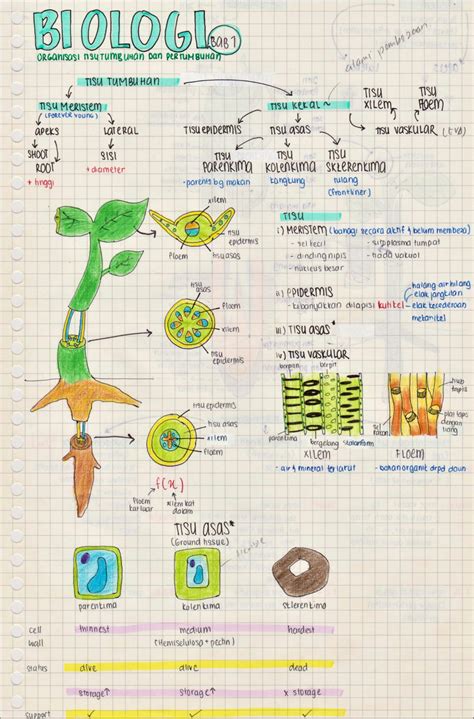 BIOLOGI BAB 1
ORGANISASI TISU TUMBUHAN DAN PERTUMBUHAN
TISU TUMBUHAN
TISU MERISTEM
(FOREVER YOUNG)
TISU KEKAL ~
TISU XILEM
TISU FLOEM
APEKS
LATERAL
TISU EPIDERMIS
TISU ASAS
TISU VASKULAR
SHOOT
ROOT
SISI
TISU PARENKIMA
TISU KOLENKIMA
TISU SKLERENKIMA
+ tinggi
+ diameter
tulang
(frontliner)
xilem
tisu epidermis
tisu asas
floem
TISU
i) MERISTEM (bahagi secara aktif & belum membeza)
- sel kecil
- dinding nipis
- nukleus besar
- sitoplasma tumpat
- tiada vakuol
floem
xilem
tisu epidermis
ii) EPIDERMIS
- kebanyakkan dilapisi kutikel
halang air hilang
elak jangkitan
elak kecederaan
mekanikal
iii) TISU ASAS*
iv) TISU VASKULAR
berpilin
parenkima
XILEM
- air & mineral terlarut
plat tapis dengan liang
FLOEM
- bahan organik drpd daun
tisu epidermis
tisu asas
xilem
floem
f(x)
floem keluar
xilem kat dalam
TISU ASAS*
(Ground tissue)
parenkima
kolenkima
sklerenkima
cell wall
thinnest
medium
(Hemiselulosa + pectin)
hardest
status
alive
alive
dead
storage↑
storage↑
x storage
support